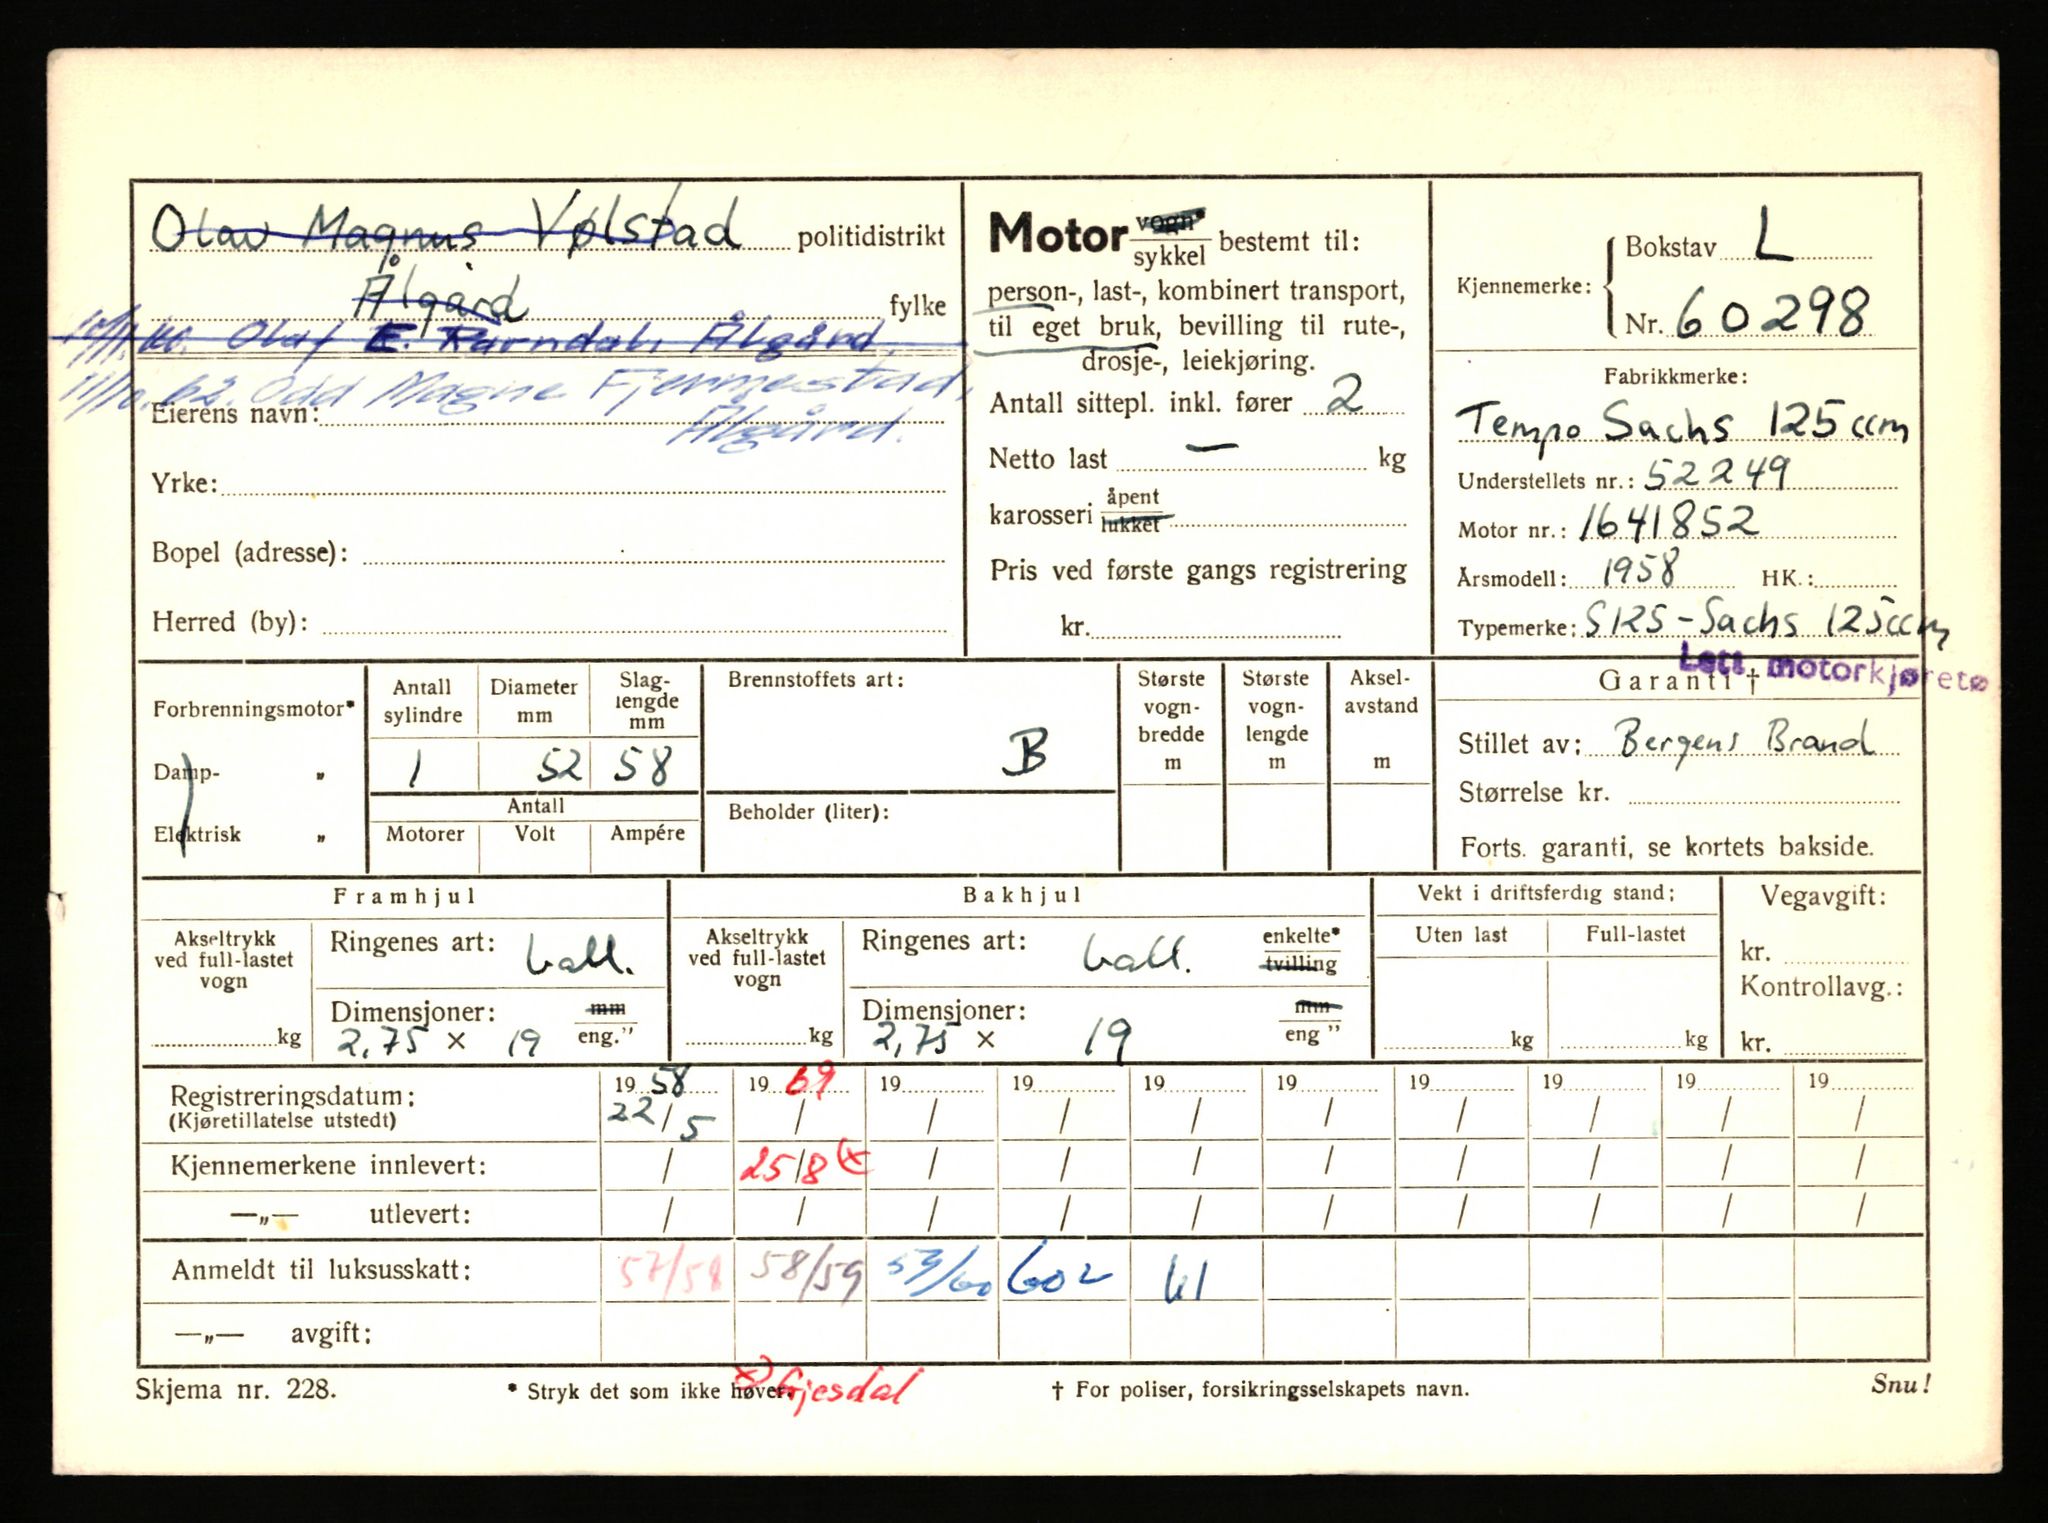 Olav Magnus Vølstad politidistrikt
Ålgård fylke
Olaf E. Ravndal, Ålgård.
11/10.62. Odd Magne Fjermestad,
Ålgård.
Eierens navn:
Yrke:
Bopel (adresse):
Herred (by):
Motor vogn* / sykkel bestemt til:
person-, last-, kombinert transport,
til eget bruk, bevilling til rute-,
drosje-, leiekjøring.
Antall sittepl. inkl. fører 2
Netto last — kg
karosseri åpent / lukket
Pris ved første gangs registrering
kr.
Kjennemerke:
Bokstav L
Nr. 60298
Fabrikkmerke:
Tempo Sachs 125 ccm
Understellets nr.: 52249
Motor nr.: 1641852
Årsmodell: 1958 HK.:
Typemerke: S125-Sachs 125ccm
Lett motorkjøretø
Forbrenningsmotor*
Damp- „
Elektrisk „
Antall sylindre
Diameter mm
Slag-lengde mm
1 52 58
Antall
Motorer Volt Ampére
Brennstoffets art:
B
Beholder (liter):
Største vogn-bredde m
Største vogn-lengde m
Aksel-avstand m
Garanti †
Stillet av: Bergens Brand
Størrelse kr.
Forts. garanti, se kortets bakside.
Framhjul
Akseltrykk ved full-lastet vogn
kg
Ringenes art: ball.
Dimensjoner: mm / eng.”
2,75 x 19
Bakhjul
Akseltrykk ved full-lastet vogn
kg
Ringenes art: ball. enkelte* / tvilling
Dimensjoner: mm / eng ”
2,75 x 19
Vekt i driftsferdig stand:
Uten last Full-lastet
kg kg
Vegavgift:
kr.
Kontrollavg.:
kr.
Registreringsdatum: 19 58 19 69 19 19 19 19 19 19 19 19
(Kjøretillatelse utstedt) 22/5 / / / / / / / / /
Kjennemerkene innlevert: / 25/8 (x / / / / / / / /
—„— utlevert: / / / / / / / / / /
Anmeldt til luksusskatt: 57/58 58/59 59/60 602 61
—„— avgift:
x) Gjesdal
Skjema nr. 228. * Stryk det som ikke høver. † For poliser, forsikringsselskapets navn. Snu!